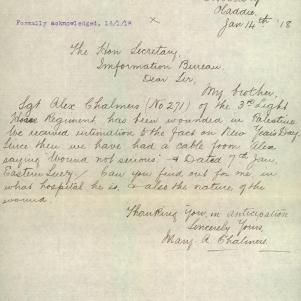 Haddie.
Jan 14th '18
Formally acknowledged, 18/1/18
The Hon Secretary,
Information Bureau.
Dear Sir,
My brother,
Sgt Alex Chalmers (No 271) of the 3rd Light
Horse Regiment has been wounded in Palestine.
We received intimation to the fact on New Year's Day.
Since then we have had a cable from Alex
saying "Wound not serious" & Dated 7th Jan.
Eastern Every / Can you find out for me in
what hospital he is, & also the nature of the
wound.
Thanking you, in anticipation
Sincerely Yours,
Mary A Chalmers